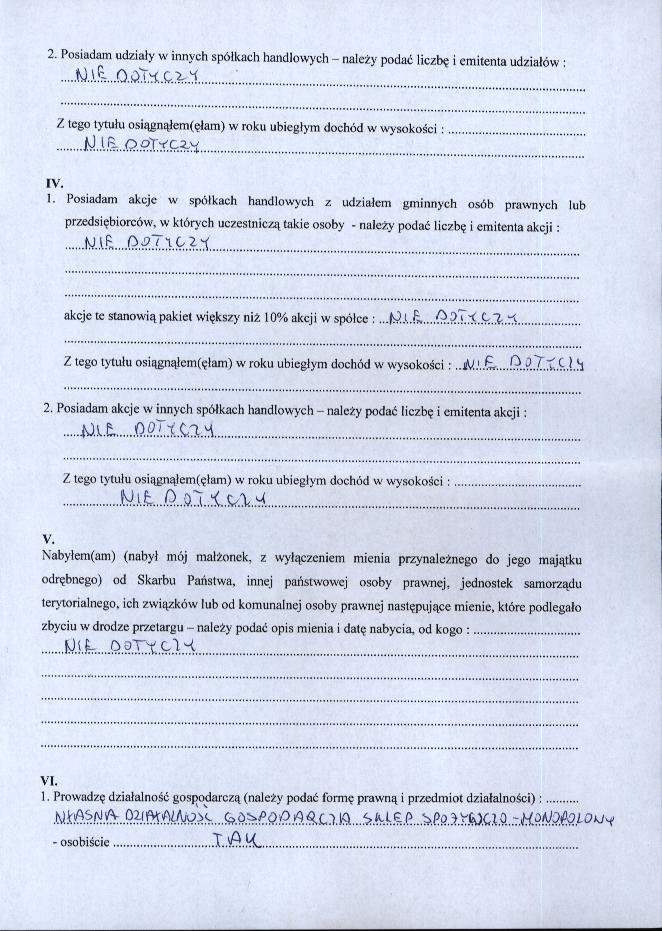 2. Posiadam udziały w innych spółkach handlowych – należy podać liczbę i emitenta udziałów :
NIE DOTYCZY
Z tego tytułu osiągnąłem(ęłam) w roku ubiegłym dochód w wysokości :
NIE DOTYCZY
IV.
1. Posiadam akcje w spółkach handlowych z udziałem gminnych osób prawnych lub
przedsiębiorców, w których uczestniczą takie osoby - należy podać liczbę i emitenta akcji :
NIE DOTYCZY
akcje te stanowią pakiet większy niż 10% akcji w spółce : NIE DOTYCZY
Z tego tytułu osiągnąłem(ęłam) w roku ubiegłym dochód w wysokości : NIE DOTYCZY
2. Posiadam akcje w innych spółkach handlowych – należy podać liczbę i emitenta akcji :
NIE DOTYCZY
Z tego tytułu osiągnąłem(ęłam) w roku ubiegłym dochód w wysokości :
NIE DOTYCZY
V.
Nabyłem(am) (nabył mój małżonek, z wyłączeniem mienia przynależnego do jego majątku
odrębnego) od Skarbu Państwa, innej państwowej osoby prawnej, jednostek samorządu
terytorialnego, ich związków lub od komunalnej osoby prawnej następujące mienie, które podlegało
zbyciu w drodze przetargu – należy podać opis mienia i datę nabycia, od kogo :
NIE DOTYCZY
VI.
1. Prowadzę działalność gospodarczą (należy podać formę prawną i przedmiot działalności) :
WŁASNA DZIAŁALNOŚĆ GOSPODARCZA SKLEP SPOŻYWCZO-MONOPOLOWY
- osobiście TAK